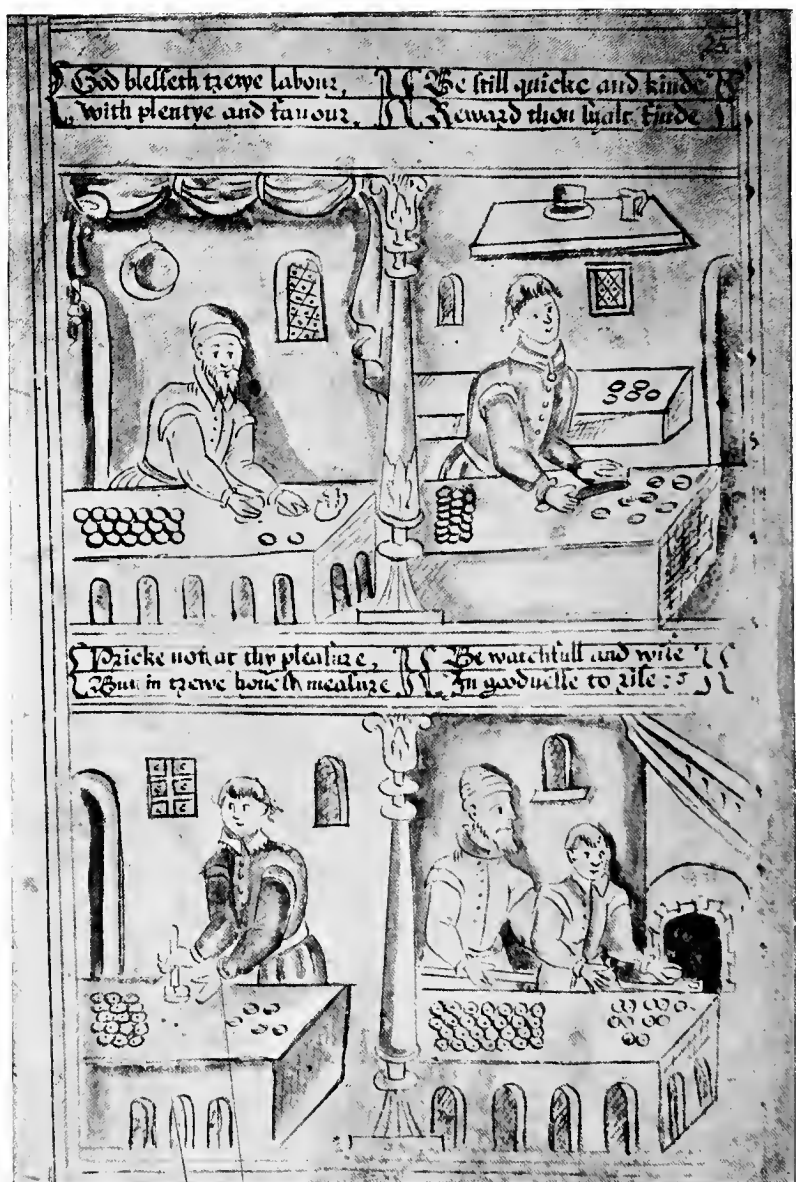 25
God blesseth trewe labour,
With plentye and fauour.
Be still quicke and kinde
Reward thou shalt finde
Pricke not at thy pleasure,
But in trewe honest measure
Be watchfull and wise
In goodnesse to rise :